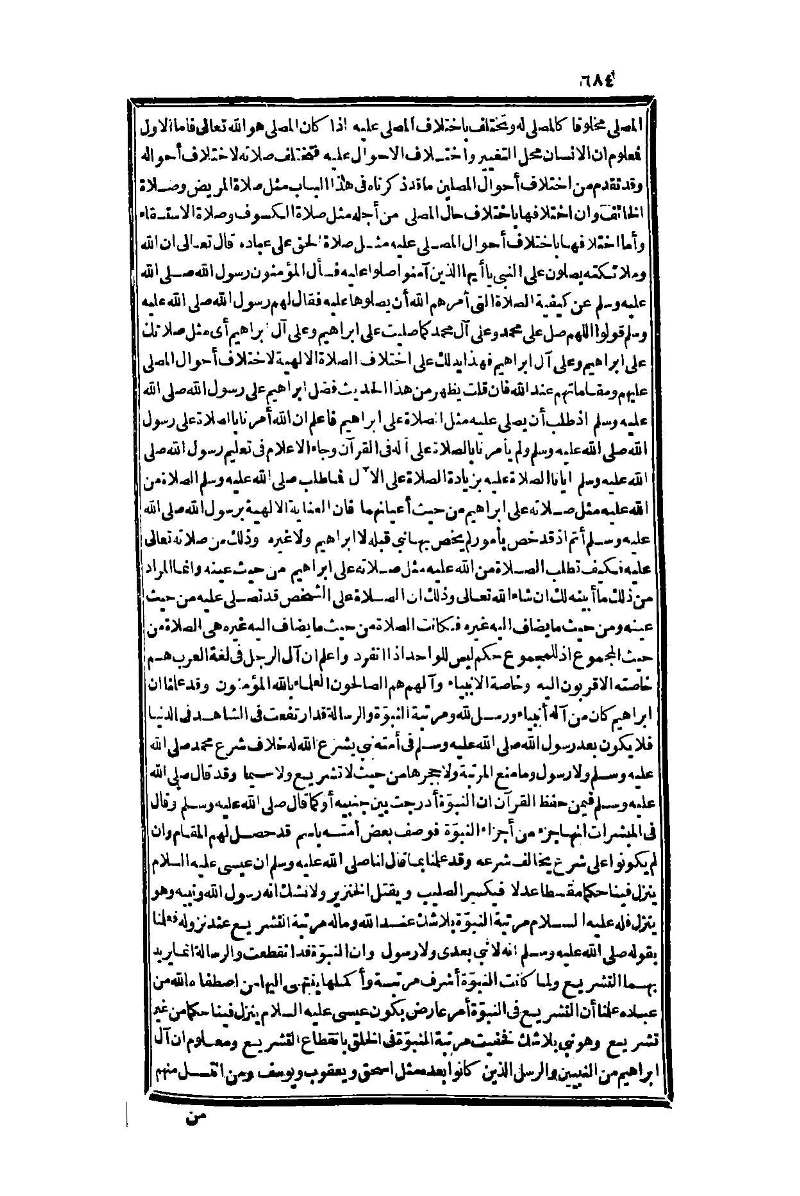 ٦٨٤
المصلى مخلوقا كالمصلى له ويختلف باختلاف المصلى عليه اذا كان المصلى هو الله تعالى فاما الاول
فمعلوم ان الانسان محل التغيير واختلاف الاحوال عليه فتختلف صلاته لاختلاف أحواله
وقد تقدم من اختلاف أحوال المصلين ماقد ذكرناه فى هذا الباب مثل صلاة المريض وصلاة
الخائف وان اختلافها باختلاف حال المصلى من أجله مثل صلاة الكسوف وصلاة الاستسقاء
وأما اختلافها باختلاف أحوال المصلى عليه مثل صلاة الحق على عباده قال تعالى ان الله
وملائكته يصلون على النبى يا أيها الذين آمنوا صلوا عليه فسأل المؤمنون رسول الله صلى الله
عليه وسلم عن كيفية الصلاة التى أمرهم الله أن يصلوها عليه فقال لهم رسول الله صلى الله عليه
وسلم قولوا اللهم صل على محمد وعلى آل محمد كما صليت على ابراهيم وعلى آل ابراهيم أى مثل صلاتك
على ابراهيم وعلى آل ابراهيم فهذا يدلك على اختلاف الصلاة الالهية لاختلاف أحوال المصلى
عليهم ومقاماتهم عند الله فان قلت يظهر من هذا الحديث فضل ابراهيم على رسول الله صلى الله
عليه وسلم اذ طلب أن يصلى عليه مثل الصلاة على ابراهيم فاعلم ان الله أمرنا بالصلاة على رسول
الله صلى الله عليه وسلم ولم يأمرنا بالصلاة على آله فى القرآن وجاء الاعلام فى تعليم رسول الله صلى
الله عليه وسلم ايانا الصلاة عليه بزيادة الصلاة على الآل فما طلب صلى الله عليه وسلم الصلاة من
الله عليه مثل صلاته على ابراهيم من حيث أعيانهما فان العناية الالهية برسول الله صلى الله
عليه وسلم أتم اذ قد خص بأمور لم يخص بها نبى قبله لا ابراهيم ولا غيره وذلك من صلاته تعالى
عليه فكيف تطلب الصلاة من الله عليه مثل صلاته على ابراهيم من حيث عينه وانما المراد
من ذلك ما أبينه لك ان شاء الله تعالى وذلك ان الصلاة على الشخص قد تصلى عليه من حيث
عينه ومن حيث ما يضاف اليه غيره فكانت الصلاة من حيث ما يضاف اليه غيره هى الصلاة من
حيث المجموع اذ للمجموع حكم ليس للواحد اذا انفرد واعلم ان آل الرجل فى لغة العرب هم
خاصته الاقربون اليه وخاصة الانبياء وآلهم هم الصالحون العلماء بالله المؤمنون وقد علمنا ان
ابراهيم كان من آله أنبياء ورسل لله ومرتبة النبوّة والرسالة قد ارتفعت فى الشاهد فى الدنيا
فلا يكون بعد رسول الله صلى الله عليه وسلم فى أمته نبى يشرع الله له خلاف شرع محمد صلى الله
عليه وسلم ولا رسول وما منع المرتبة ولا حجرها من حيث لا تشريع ولا سيما وقد قال صلى الله
عليه وسلم فيمن حفظ القرآن ان النبوّة أدرجت بين جنبيه أو كما قال صلى الله عليه وسلم وقال
فى المبشرات انها جزء من أجزاء النبوّة فوصف بعض أمته باسم قد حصل لهم المقام وان
لم يكونوا على شرع يخالف شرعه وقد علمنا بما قال لنا صلى الله عليه وسلم ان عيسى عليه السلام
ينزل فينا حكما مقسطا عدلا فيكسر الصليب ويقتل الخنزير ولا نشك انه رسول الله ونبيه وهو
ينزل فله عليه السلام مرتبة النبوّة بلا شك عند الله وماله مرتبة التشريع عند نزوله فعلمنا
بقوله صلى الله عليه وسلم انه لا نبى بعدى ولا رسول وان النبوّة قد انقطعت والرسالة انما يريد
بهما التشريع ولما كانت النبوّة أشرف مرتبة وأكملها ينتهى اليها من اصطفاه الله من
عباده علمنا أن التشريع فى النبوّة أمر عارض بكون عيسى عليه السلام ينزل فينا حكما من غير
تشريع وهو نبى بلا شك فخفيت مرتبة النبوّة فى الخلق بانقطاع التشريع ومعلوم ان آل
ابراهيم من النبيين والرسل الذين كانوا بعده مثل اسحق ويعقوب ويوسف ومن انتسل منهم
من